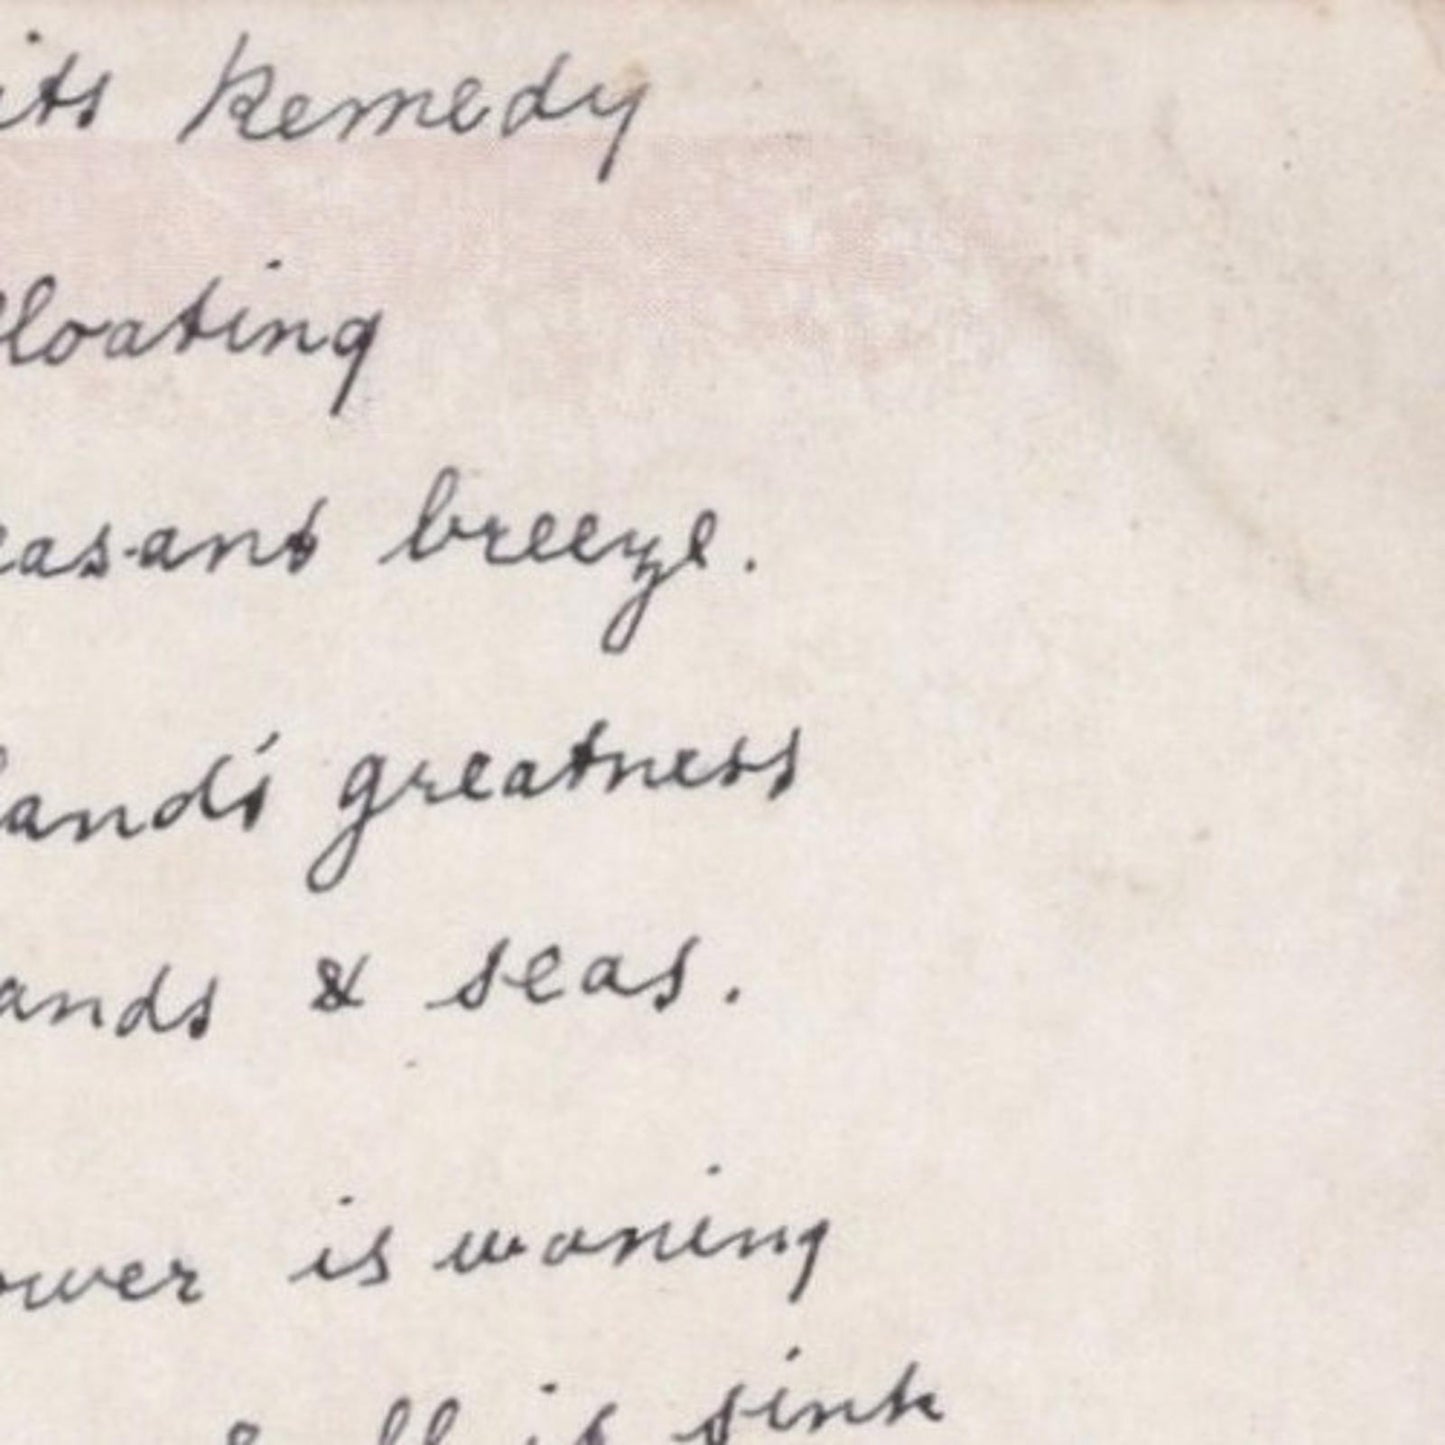 its Remedy
loating
easant breeze.
land's greatness
ands & seas.
ower is waning
sink